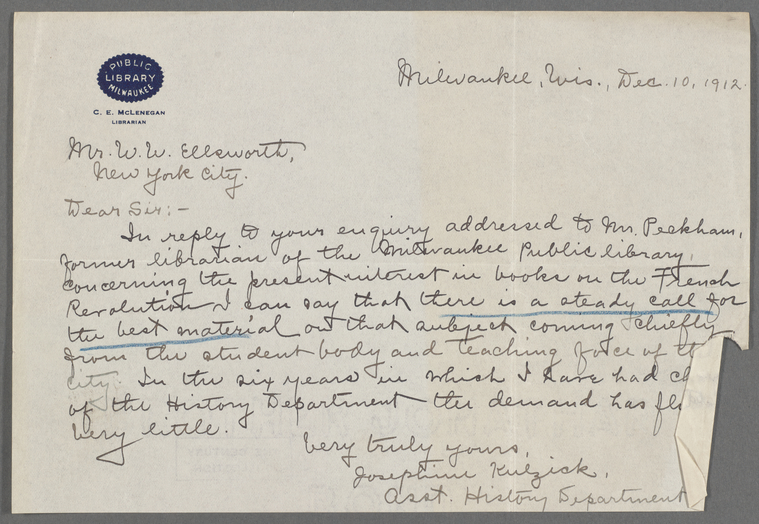 PUBLIC
LIBRARY
MILWAUKEE
C. E. McLENEGAN
LIBRARIAN
Milwaukee, Wis., Dec. 10, 1912.
Mr. W. W. Ellsworth,
New York City.
Dear Sir:-
In reply to your enquiry addressed to Mr. Peckham,
former librarian of the Milwaukee Public library,
concerning the present interest in books on the French
Revolution I can say that there is a steady call for
the best material on that subject coming chiefly
from the student body and teaching force of
city. In the six years in which I have had
of the History Department the demand has
very little.
Very truly yours,
Josephine
Asst. History Department